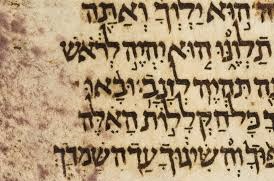 הוּא יַלְוְךָ וְאַתָּה
תַלְוֶנּוּ הוּא יִהְיֶה לְרֹאשׁ
תִּהְיֶה לְזָנָב וּבָאוּ
כָּל הַקְּלָלוֹת הָאֵלֶּה
וְהִשִּׂיגוּךָ עַד הִשָּׁמְדָךְ